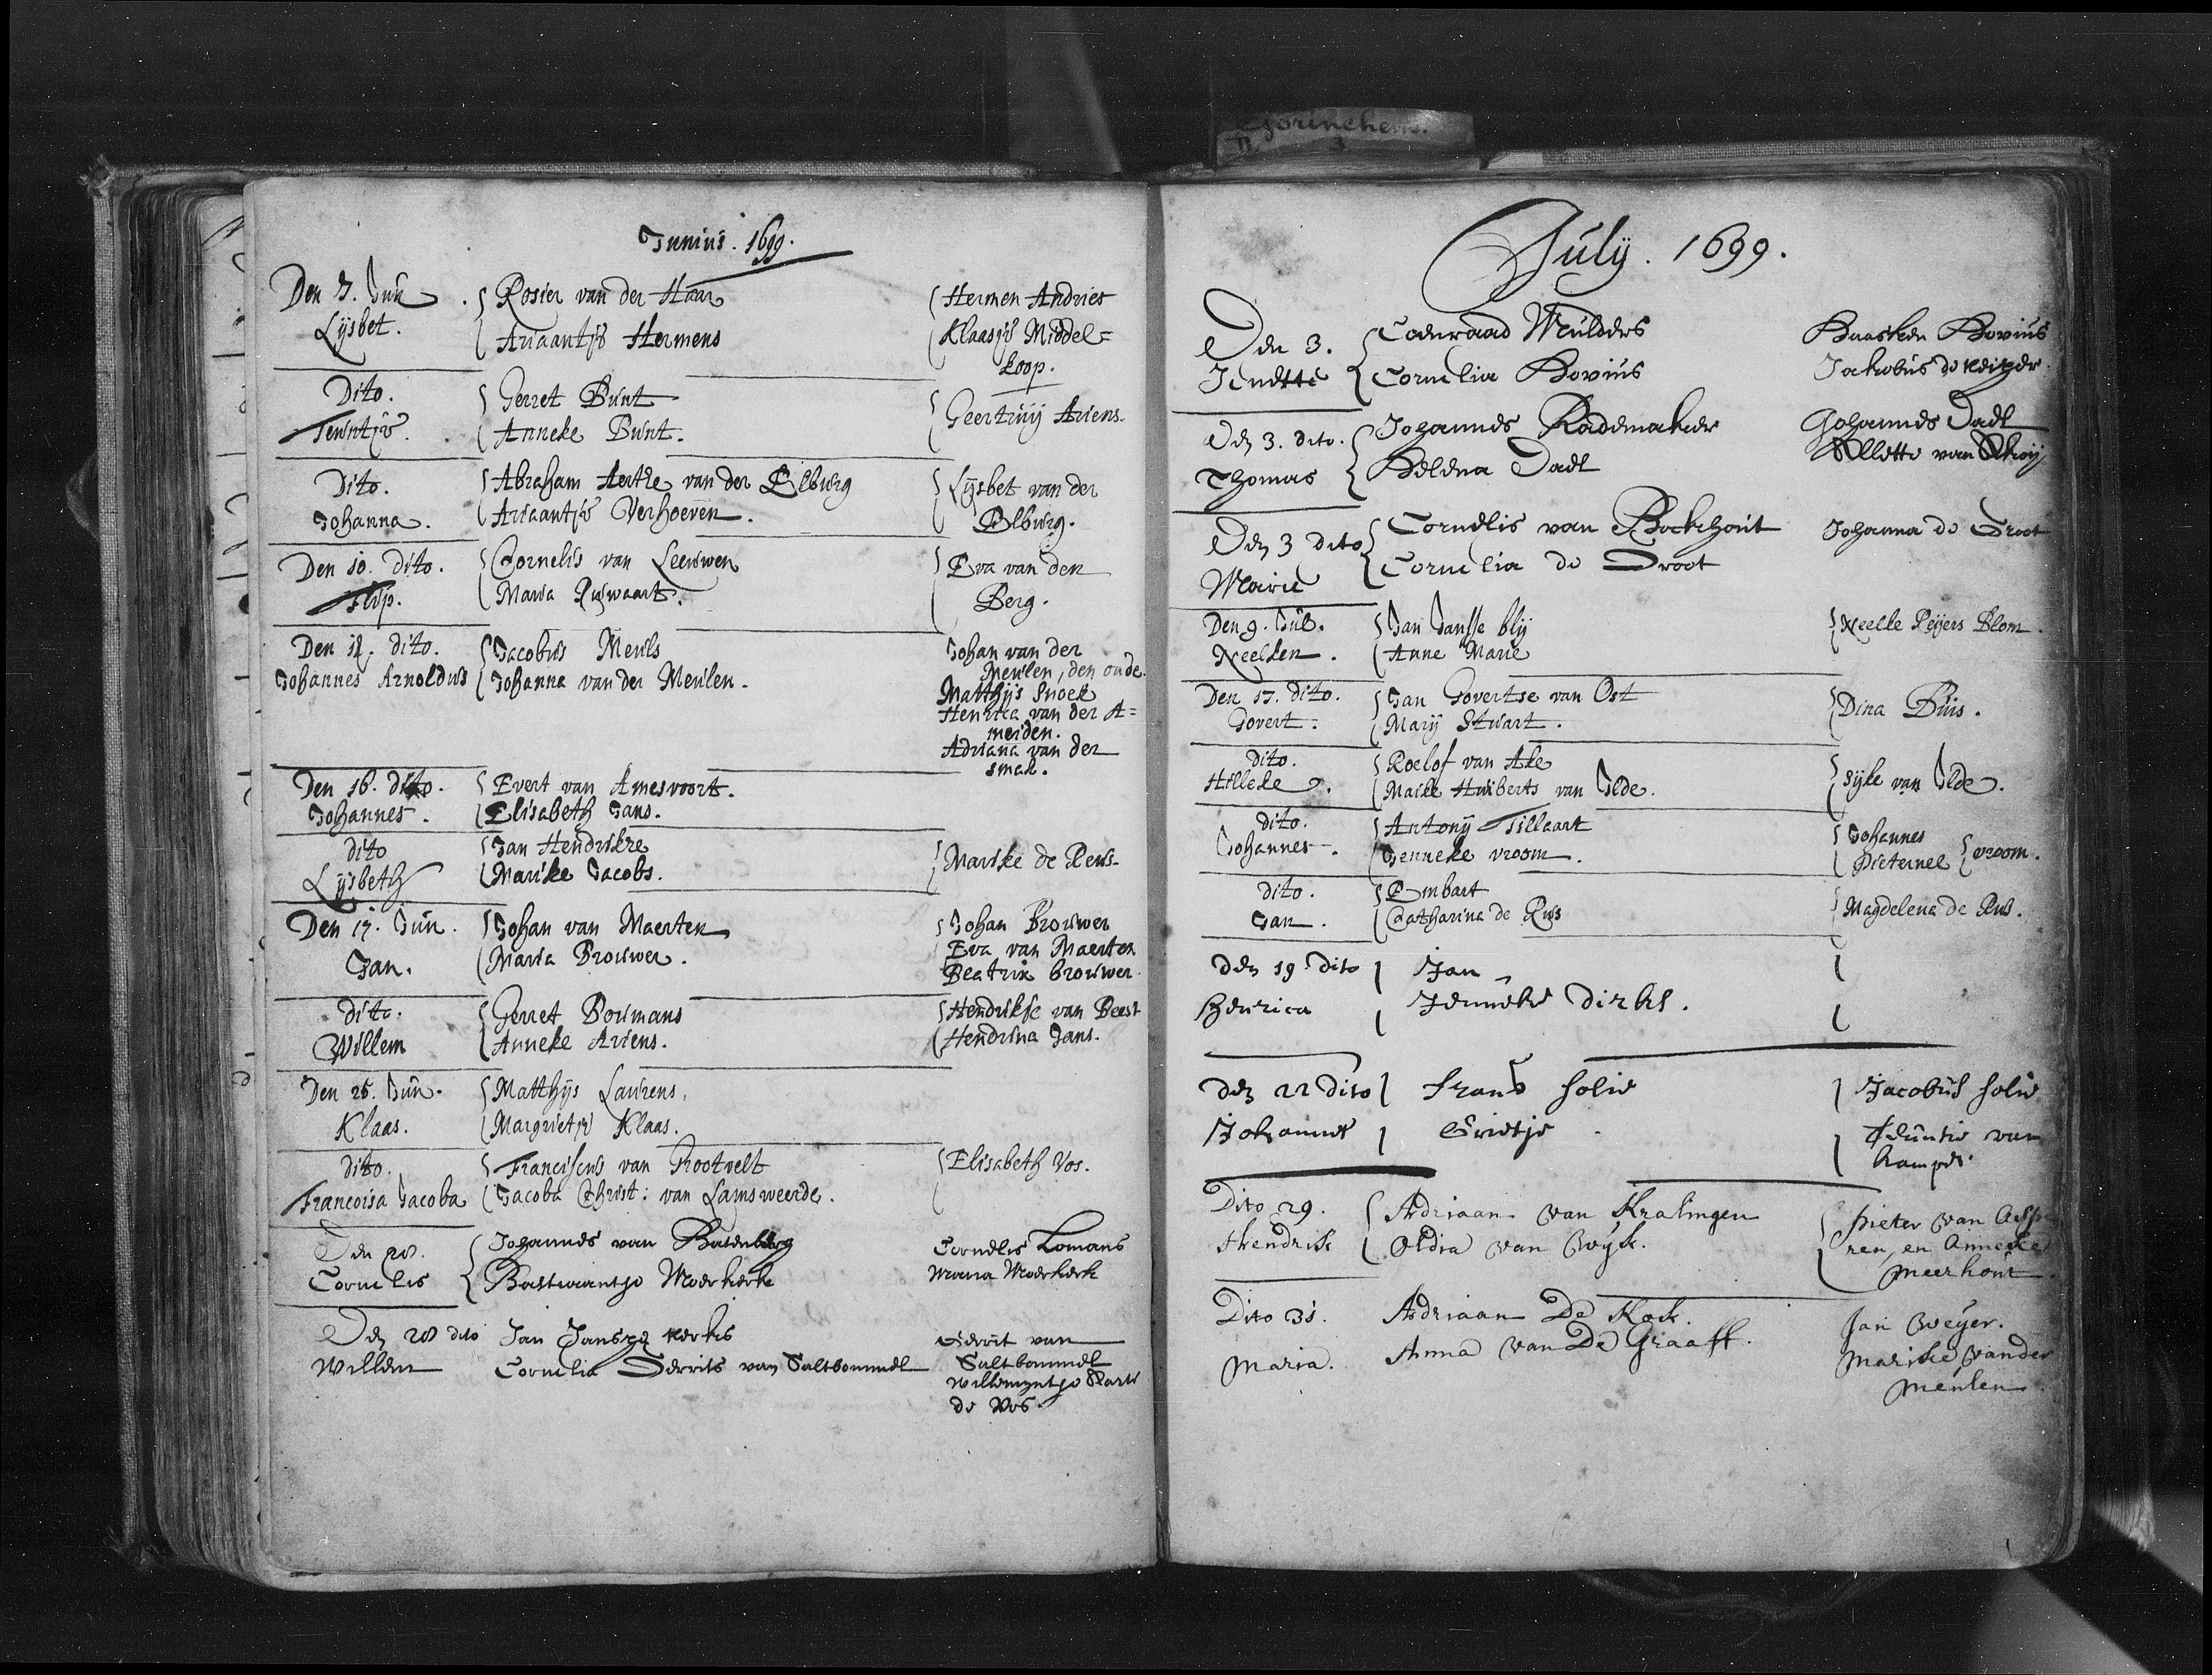 Gorinchem.
3
Junius. 1699.
Den 7. Jun. Rosier van der Haar Hermen Andries
Lijsbet. Ariaantje Hermens Klaasje Middel=
koop.
Dito. Gerret Bunt Geertruij Ariens.
Teuntje. Anneke Bunt.
Dito. Abraham Aertse van der Elburg Lijsbet van der
Johanna. Ariaantje Verhoeven. Elburg.
Den 10. dito. Cornelis van Leeuwen Eva van den
Flip. Maria Ruwaart. Berg.
Den 12. dito. Jacobus Meuls Johan van der
Johannes Arnoldus Johanna van der Meulen. Meulen, den oude.
Matthijs Snoek
Henrica van der A=
meiden.
Adriana van der
smak.
Den 16. dito. Evert van Amesvoort.
Johannes. Elisabeth Jans.
dito Jan Hendrikze Marike de Reus.
Lijsbeth Marike Jacobs.
Den 17. Jun. Johan van Maerten Johan Brouwer
Jan. Maria Brouwer. Eva van Maerten
Beatrix brouwer.
dito. Gerret Bormans Hendrikse van Beest
Willem Anneke Ariens. Hendrina Jans.
Den 25. Jun. Matthijs Laurens,
Klaas. Margrietje Klaas.
dito. Franciscus van Grootvelt Elisabeth Vos.
Francoisa Jacoba Jacoba Christ: van Lamsweerde.
Den 28. Johannes van Batenburg Cornelis Lomans
Cornelis Bastiaantje Moerkerke Maria Moerkerk
Den 28 dito Jan Jansze Gerrit van
Willem Cornelia Gerrits van Saltbommel Saltbommel
Willemyntje
de Vos.
July. 1699.
Den 3. Coenraad Mulders Baasken Bovius
Jenette Cornelia Bovius Jakobus de
Den 3. dito. Johannes Rademaker Johannes Dael
Thomas Helena Dael Allette van
Den 3 dito Cornelis van Bockhout Johanna de Groot
Marie Cornelia de Groot
Den 9. Jul. Jan Jansse blij Neelke Reijers Blom.
Neelken. Anne Marie
Den 17. dito. Jan Govertse van Ost Dina Buis.
Govert. Marij Stuart.
dito. Roelof van Ake Sijke van Ilde.
Hilleke. Maike Huiberts van Ilde.
dito. Antonij Tillaart Johannes
Johannes. Jenneke vroom. Pieternel vroom.
dito. Embart Magdelena de Rus.
Jan. Catharina de Rus
den 19 dito Jan
Henrica Jenneke Dirks.
den 22 dito Frans solie Jacobus solie
Johannes Grietje Teuntie van
kampen.
Dito 29. Adriaan van Kralingen Pieter van Aspe
Hendrik Aldia van Wyk. ren, en Anneke
Meerhout.
Dito 31. Adriaan De Kok. Jan Weyer.
Maria. Anna van De Graaff. Marike vander
Meulen.